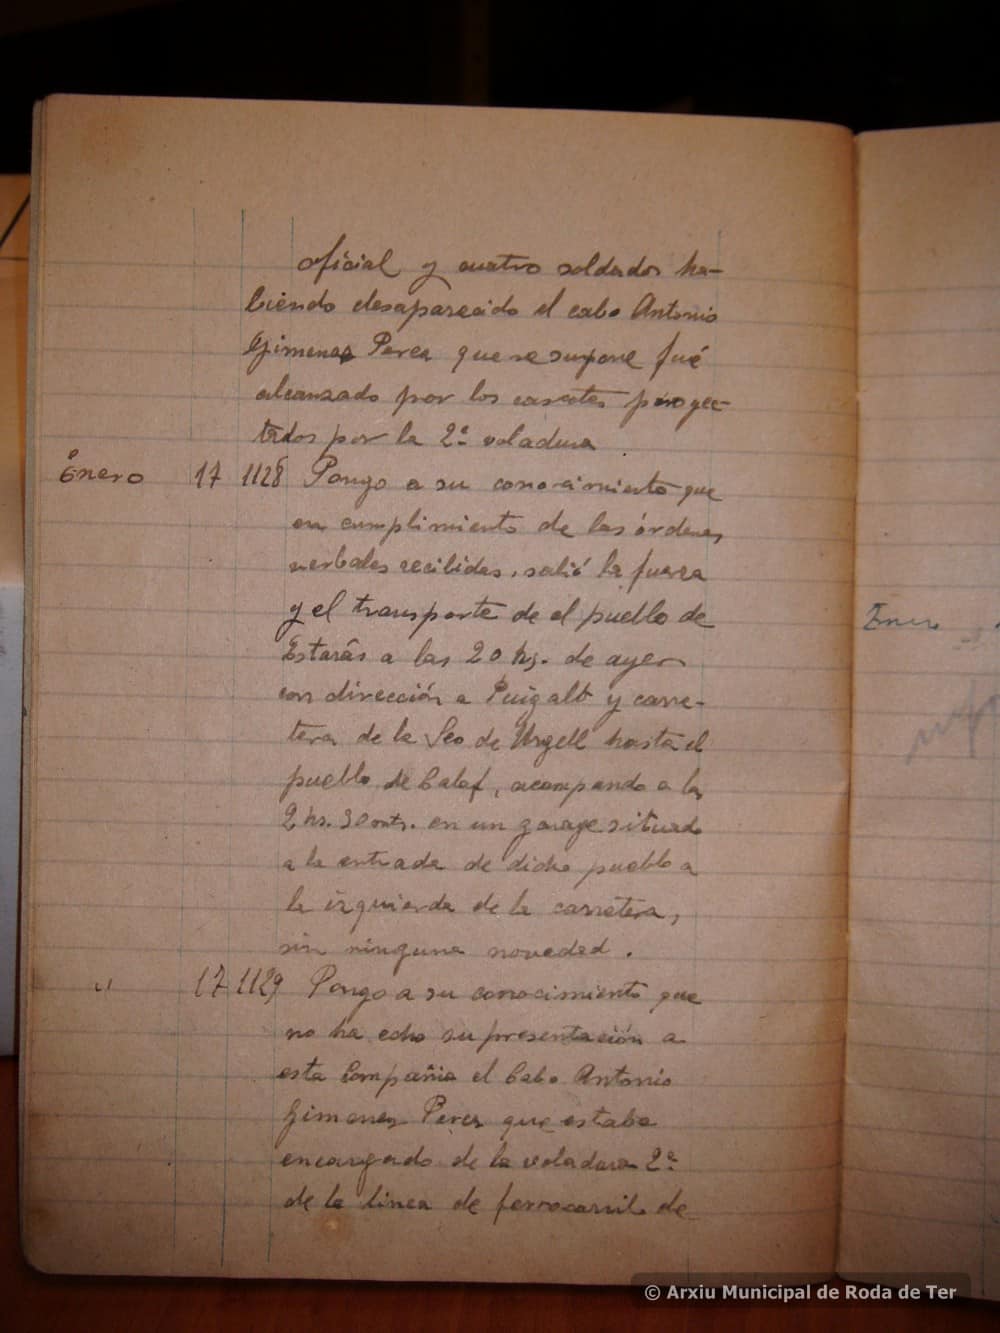 oficial y cuatro soldados ha-
biendo desaparecido el cabo Antonio
Gimenez Perea que se supone fué
alcanzado por los cascotes proyec-
tados por la 2ª voladura
Enero 17 1128 Pongo a su conocimiento que
en cumplimiento de las órdenes
verbales recibidas, salió la fuerza
y el transporte de el pueblo de
Estarás a las 20 hs. de ayer
con dirección a Puigalt y carre-
tera de la Seo de Urgell hasta el
pueblo de Calaf, acampando a las
2 hs. 30 mts. en un garage situado
a la entrada de dicho pueblo a
la izquierda de la carretera,
sin ninguna novedad.
" 17 1129 Pongo a su conocimiento que
no ha echo su presentación a
esta Compañia el Cabo Antonio
Gimenez Perea que estaba
encargado de la voladura 2ª
de la linea de ferrocarril de
Enero
© Arxiu Municipal de Roda de Ter